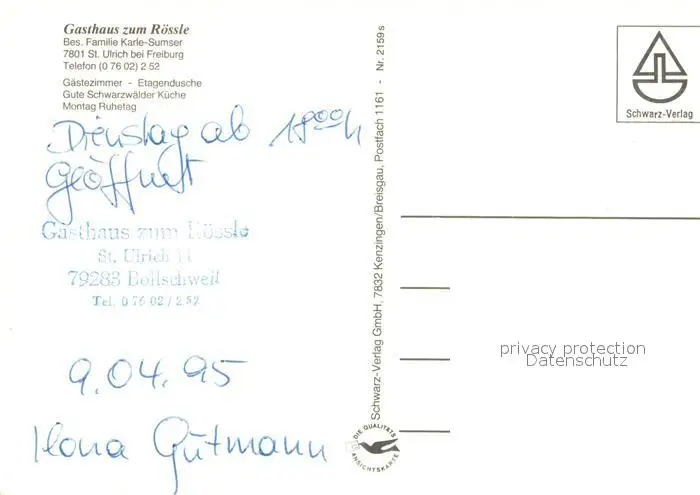 Gasthaus zum Rössle
Bes. Familie Karle-Sumser
7801 St. Ulrich bei Freiburg
Telefon (0 76 02) 2 52
Gästezimmer - Etagendusche
Gute Schwarzwälder Küche
Montag Ruhetag
Dienstag ab 18ooh
Geöffnet
Gasthaus zum Rössle
St. Ulrich 11
79283 Bollschweil
Tel. 0 76 02 / 2 52
9.04.95
Ilona Gutmann
Schwarz-Verlag GmbH, 7832 Kenzingen/Breisgau, Postfach 1161 - Nr. 2159 s
DIE QUALITÄTS
ANSICHTSKARTE
Schwarz-Verlag
privacy protection
Datenschutz